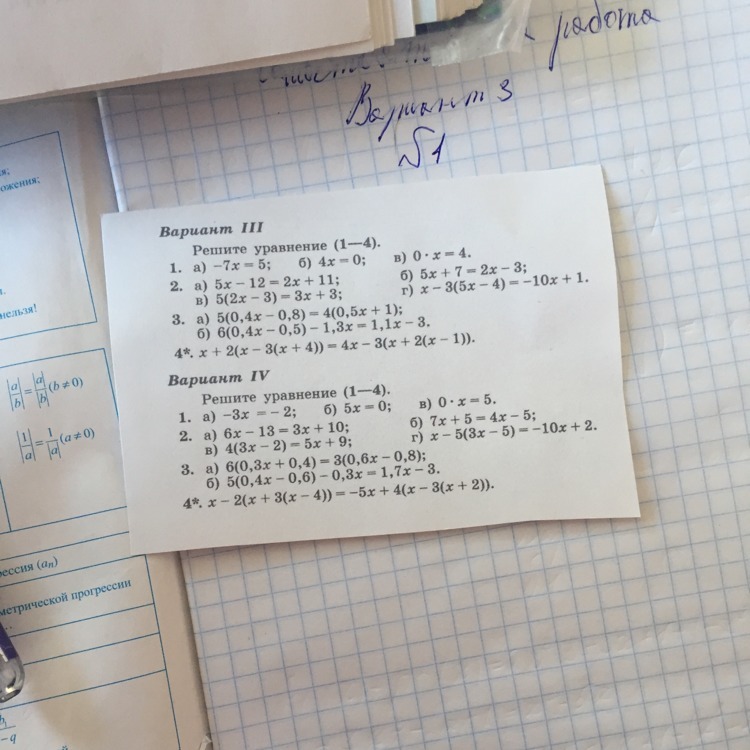 работа
Вариант 3
№1
Вариант III
Решите уравнение (1—4).
1. а) –7x = 5; б) 4x = 0; в) 0 · x = 4.
2. а) 5x – 12 = 2x + 11; б) 5x + 7 = 2x – 3;
в) 5(2x – 3) = 3x + 3; г) x – 3(5x – 4) = –10x + 1.
3. а) 5(0,4x – 0,8) = 4(0,5x + 1);
б) 6(0,4x – 0,5) – 1,3x = 1,1x – 3.
4*. x + 2(x – 3(x + 4)) = 4x – 3(x + 2(x – 1)).
Вариант IV
Решите уравнение (1—4).
1. а) –3x = – 2; б) 5x = 0; в) 0 · x = 5.
2. а) 6x – 13 = 3x + 10; б) 7x + 5 = 4x – 5;
в) 4(3x – 2) = 5x + 9; г) x – 5(3x – 5) = –10x + 2.
3. а) 6(0,3x + 0,4) = 3(0,6x – 0,8);
б) 5(0,4x – 0,6) – 0,3x = 1,7x – 3.
4*. x – 2(x + 3(x – 4)) = –5x + 4(x – 3(x + 2)).
нельзя!
|a/b| = |a|/|b| (b ≠ 0)
|1/a| = 1/|a| (a ≠ 0)
(aₙ)
прогрессии
b₁
– q